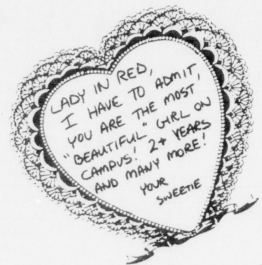 LADY IN RED,
I HAVE TO ADMIT,
YOU ARE THE MOST,
"BEAUTIFUL" GIRL ON
CAMPUS! 2+ YEARS
AND MANY MORE!
YOUR
SWEETIE